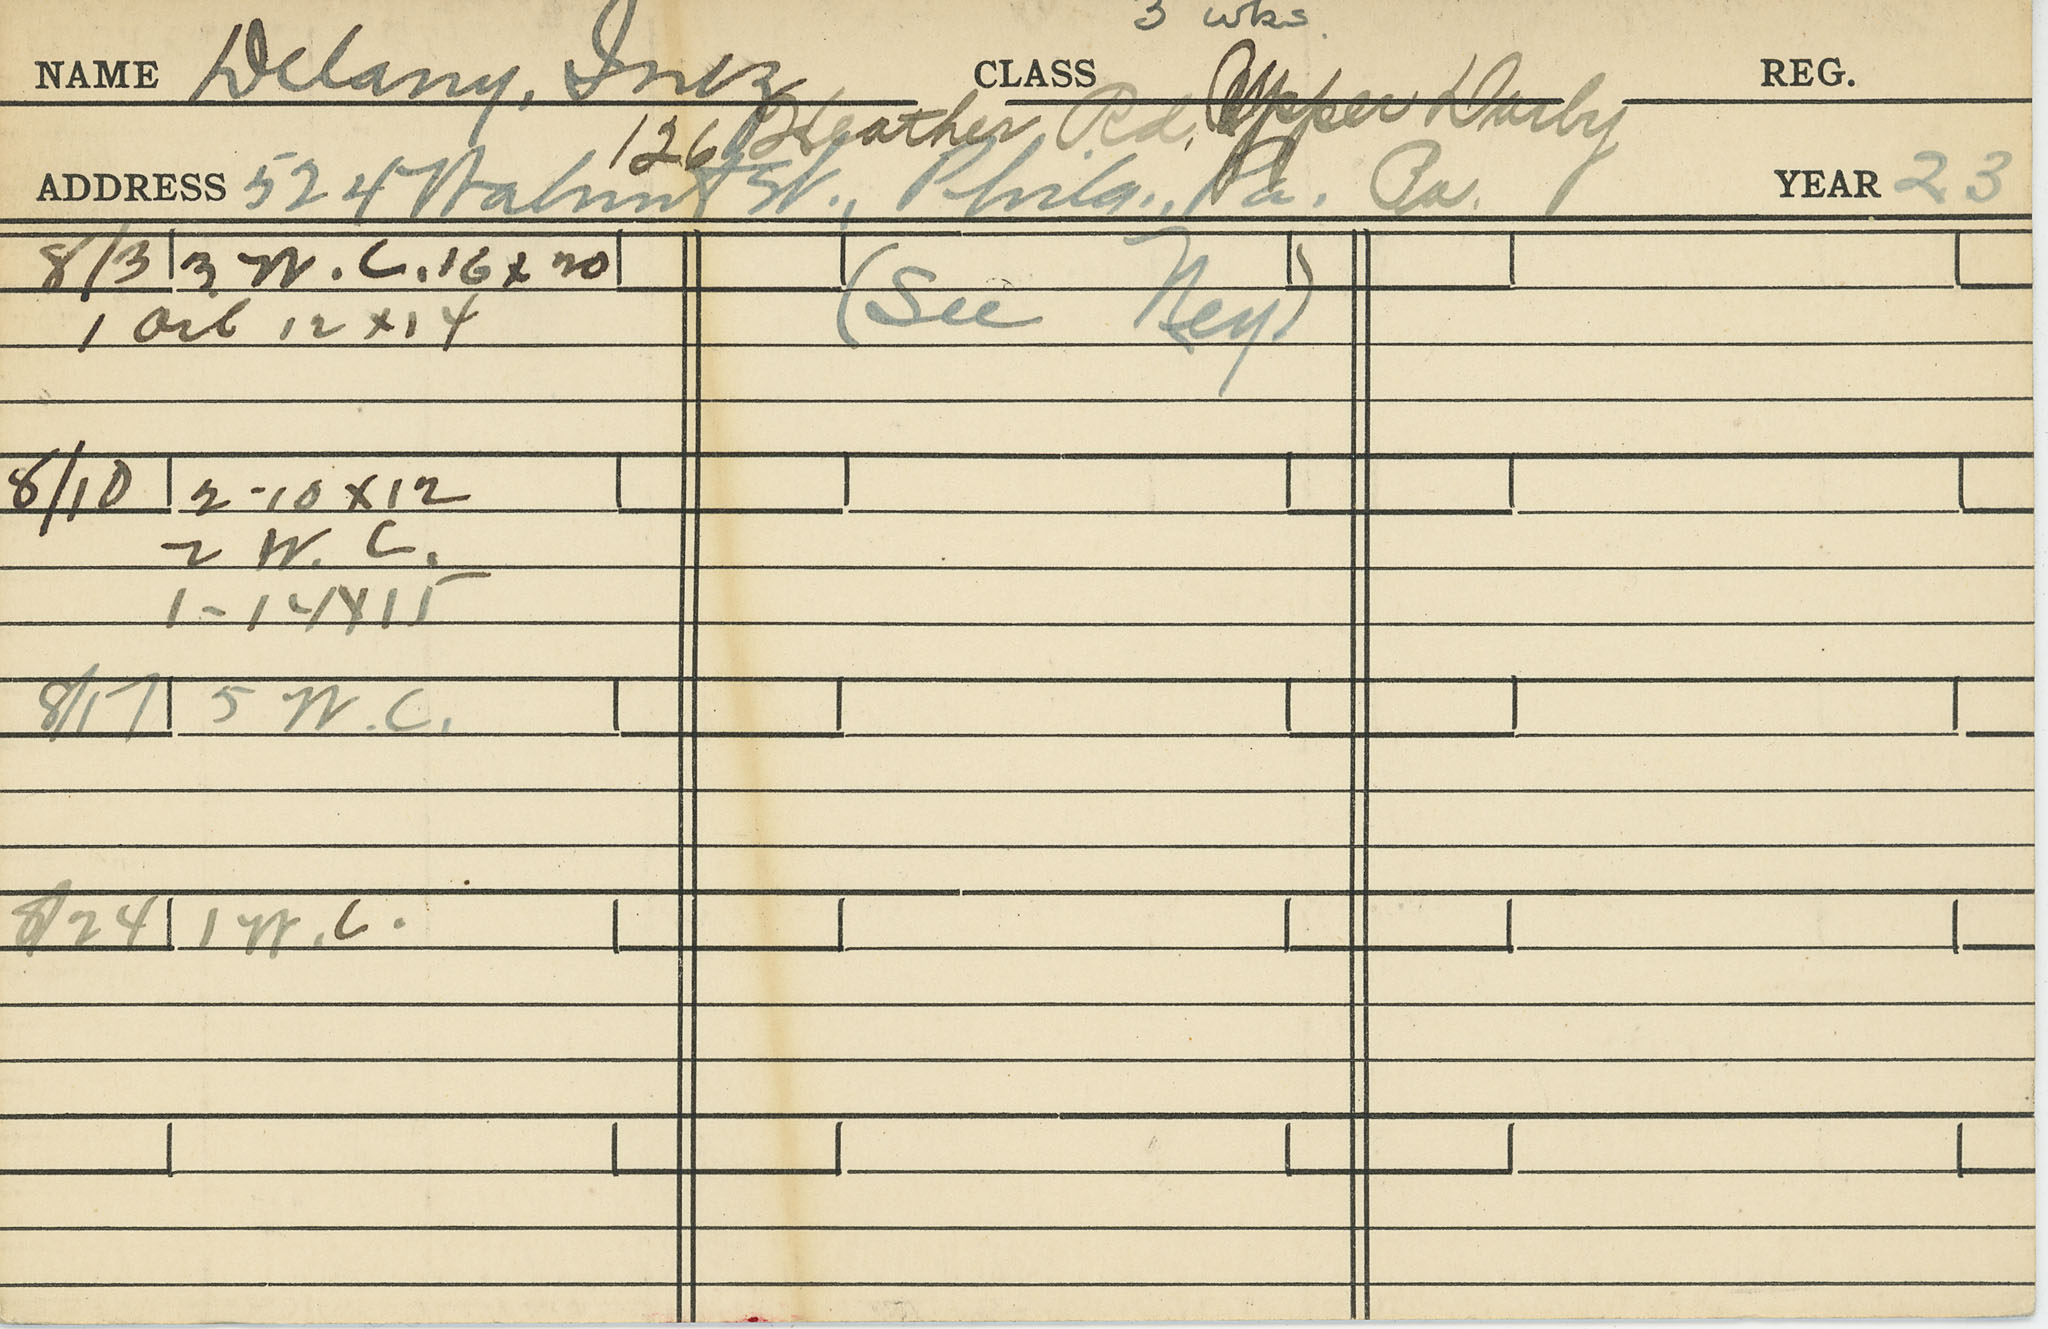 3 wks.
NAME Delany, Inez CLASS REG.
126 Heather Rd, Upper Darby
ADDRESS 524 Walnut St., Phila., Pa. Pa. YEAR 23
8/3 3 W.C. 16 x 20 (See Ney.)
1 Oil 12 x 14
8/10 2-10 x 12
2 W. C.
1-12x15
8/17 5 W.C.
8/24 1 W.C.